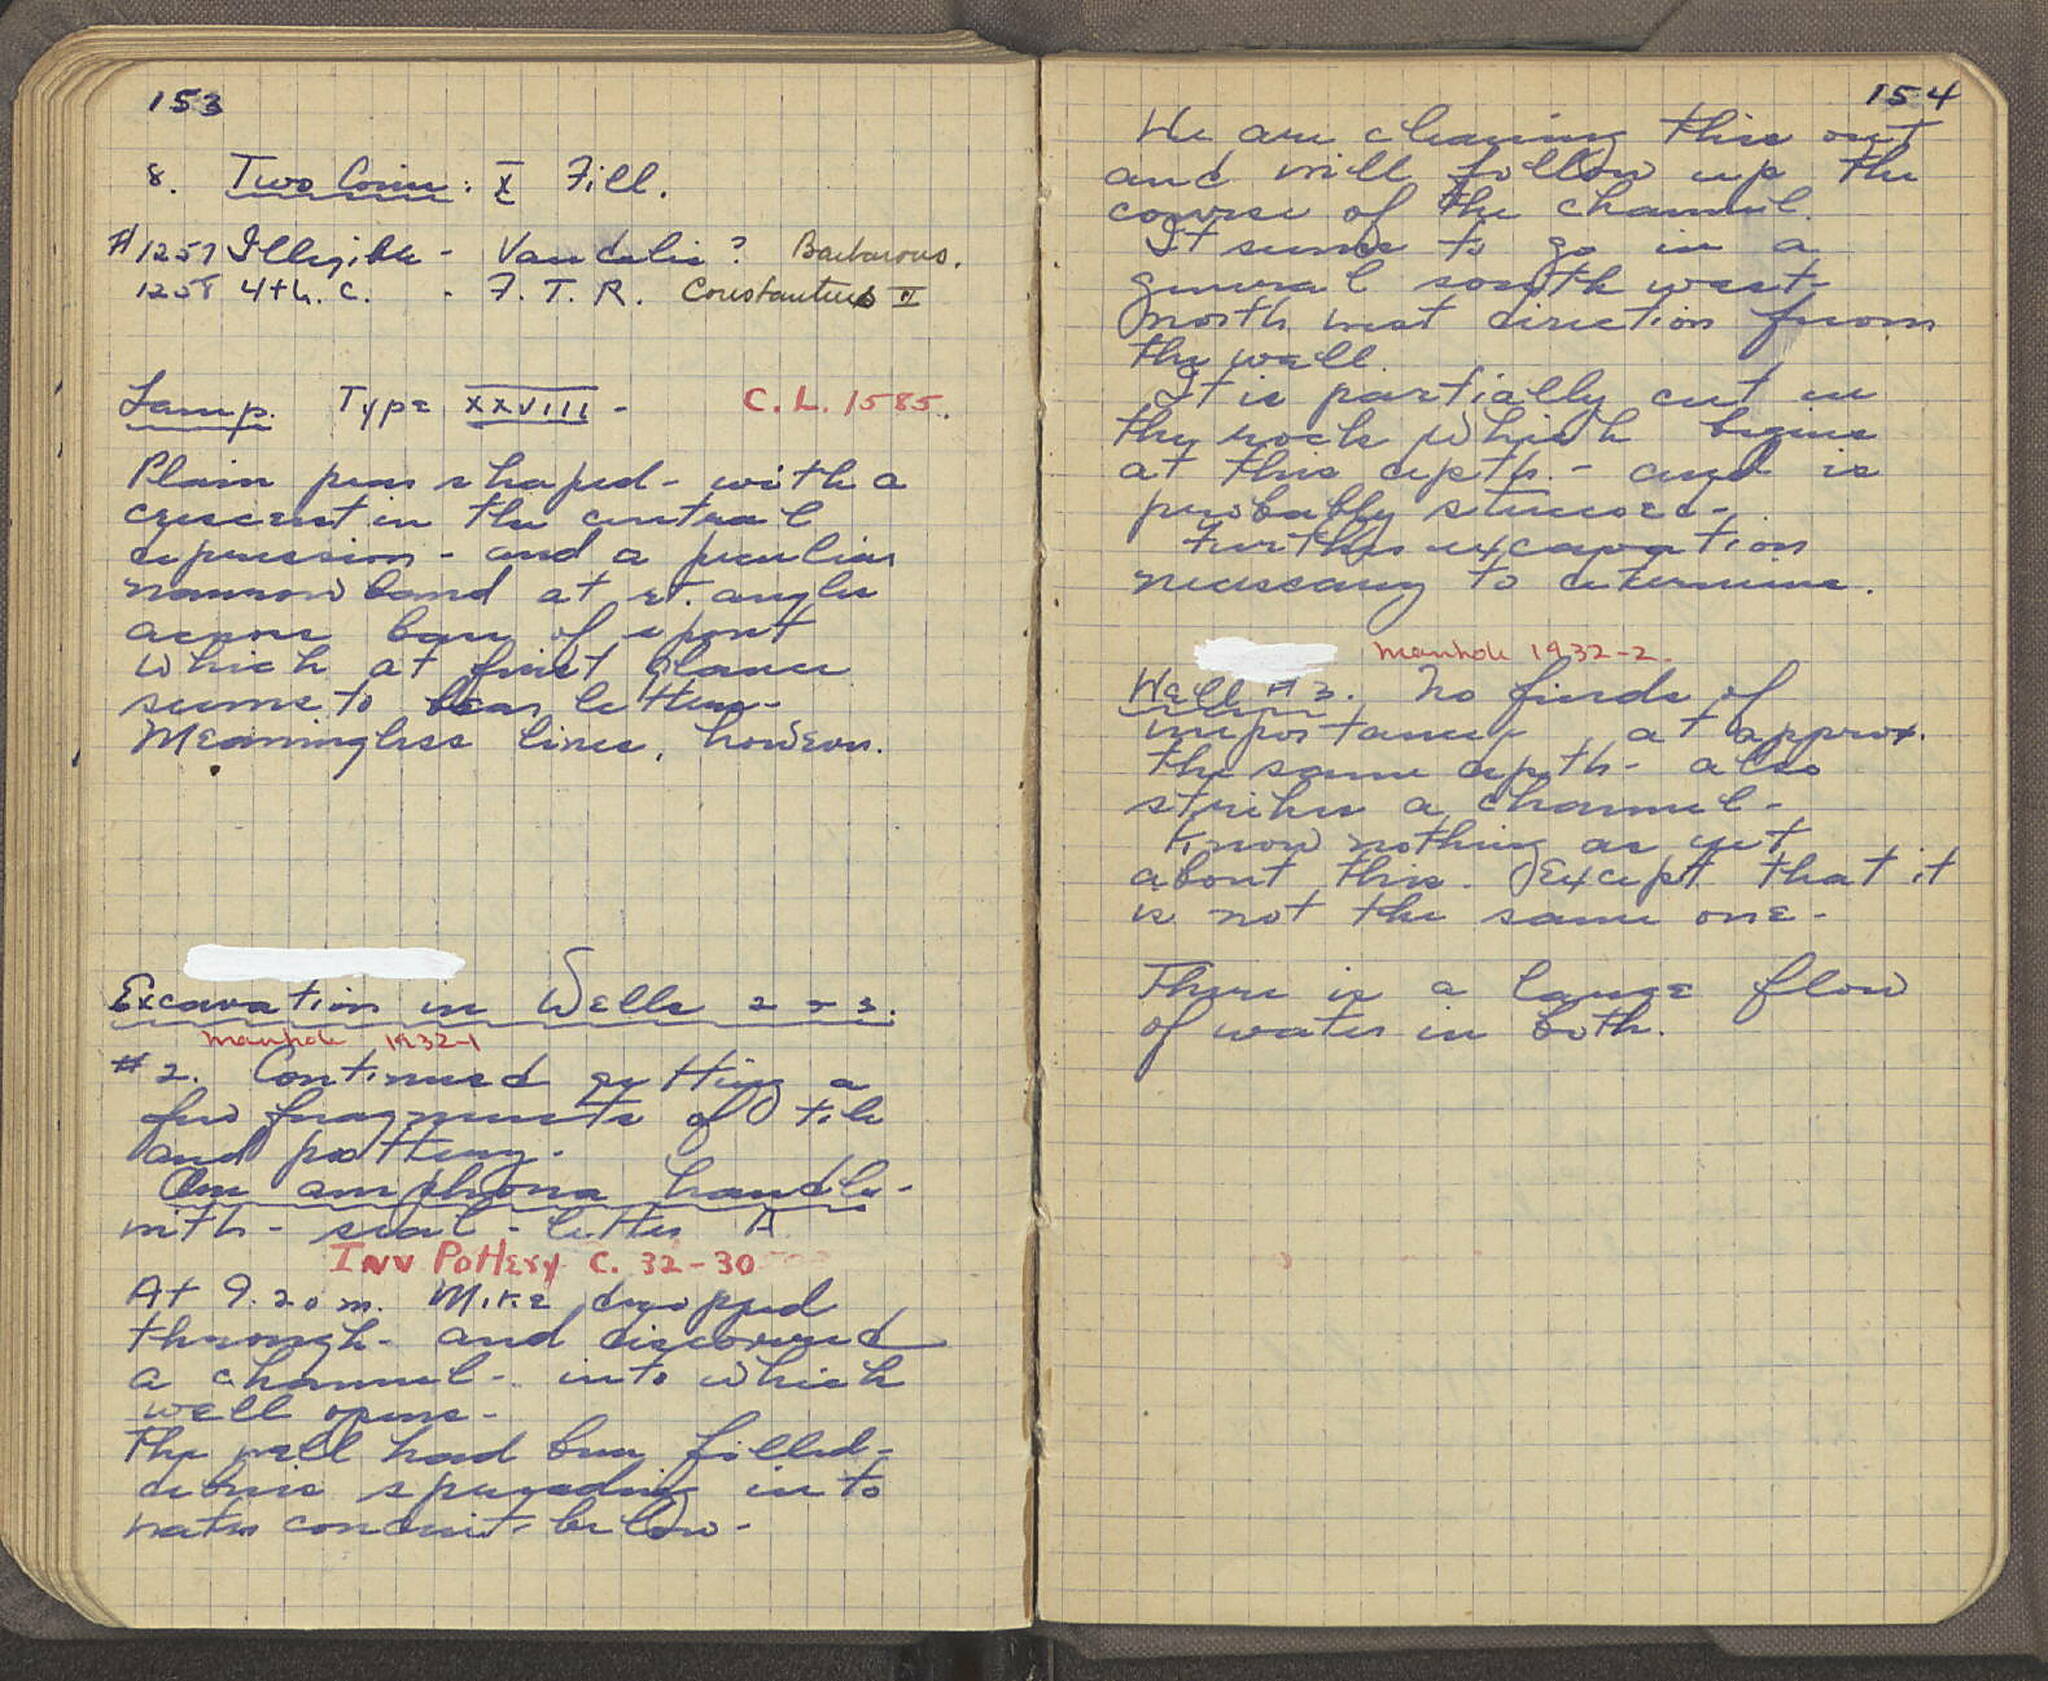 153
8. Two Coins: X Fill.
#1257 Illegible - Vandalic? Barbarous.
1258 4th. c. - F. T. R. Constantius II
Lamp. Type XXVIII - C. L. 1585.
Plain pear shaped - with a
crescent in the central
depression - and a peculiar
narrow band at rt. angles
across base of spout
which at first glance
seems to bear letters -
Meaningless lines, however.
Excavation in Wells 2 + 3.
Manhole 1932-1
#2. Continued getting a
few fragments of tile
and pottery.
One amphora handle -
with - seal - letter A
Inv Pottery C. 32-30
At 9.20 m. Mike dropped
through - and discovered
a channel - into which
well opens -
The well had been filled -
debris spreading into
water conduit - below -
154
We are cleaning this out
and will follow up the
course of the channel.
It seems to go in a
general south west -
north west direction from
the well.
It is partially cut in
the rock which begins
at this depth. - and is
probably stuccoed -
Further excavation
necessary to determine.
Manhole 1932-2.
Well #3. No finds of
importance, at approx.
the same depth - also
strikes a channel -
Know nothing as yet
about this. Except that it
is not the same one -
There is a large flow
of water in both.